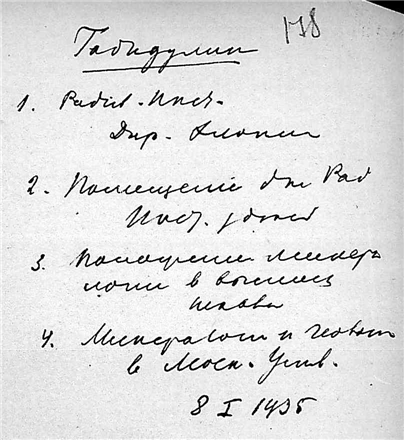 178
Габидулин
1. Радиев. Инст.
Дир.
2. Помещение для Рад
Инст.
3. Положение минера
логии в высших
4. Минералоги и геохим
в Моск. Унив.
8 I 1935